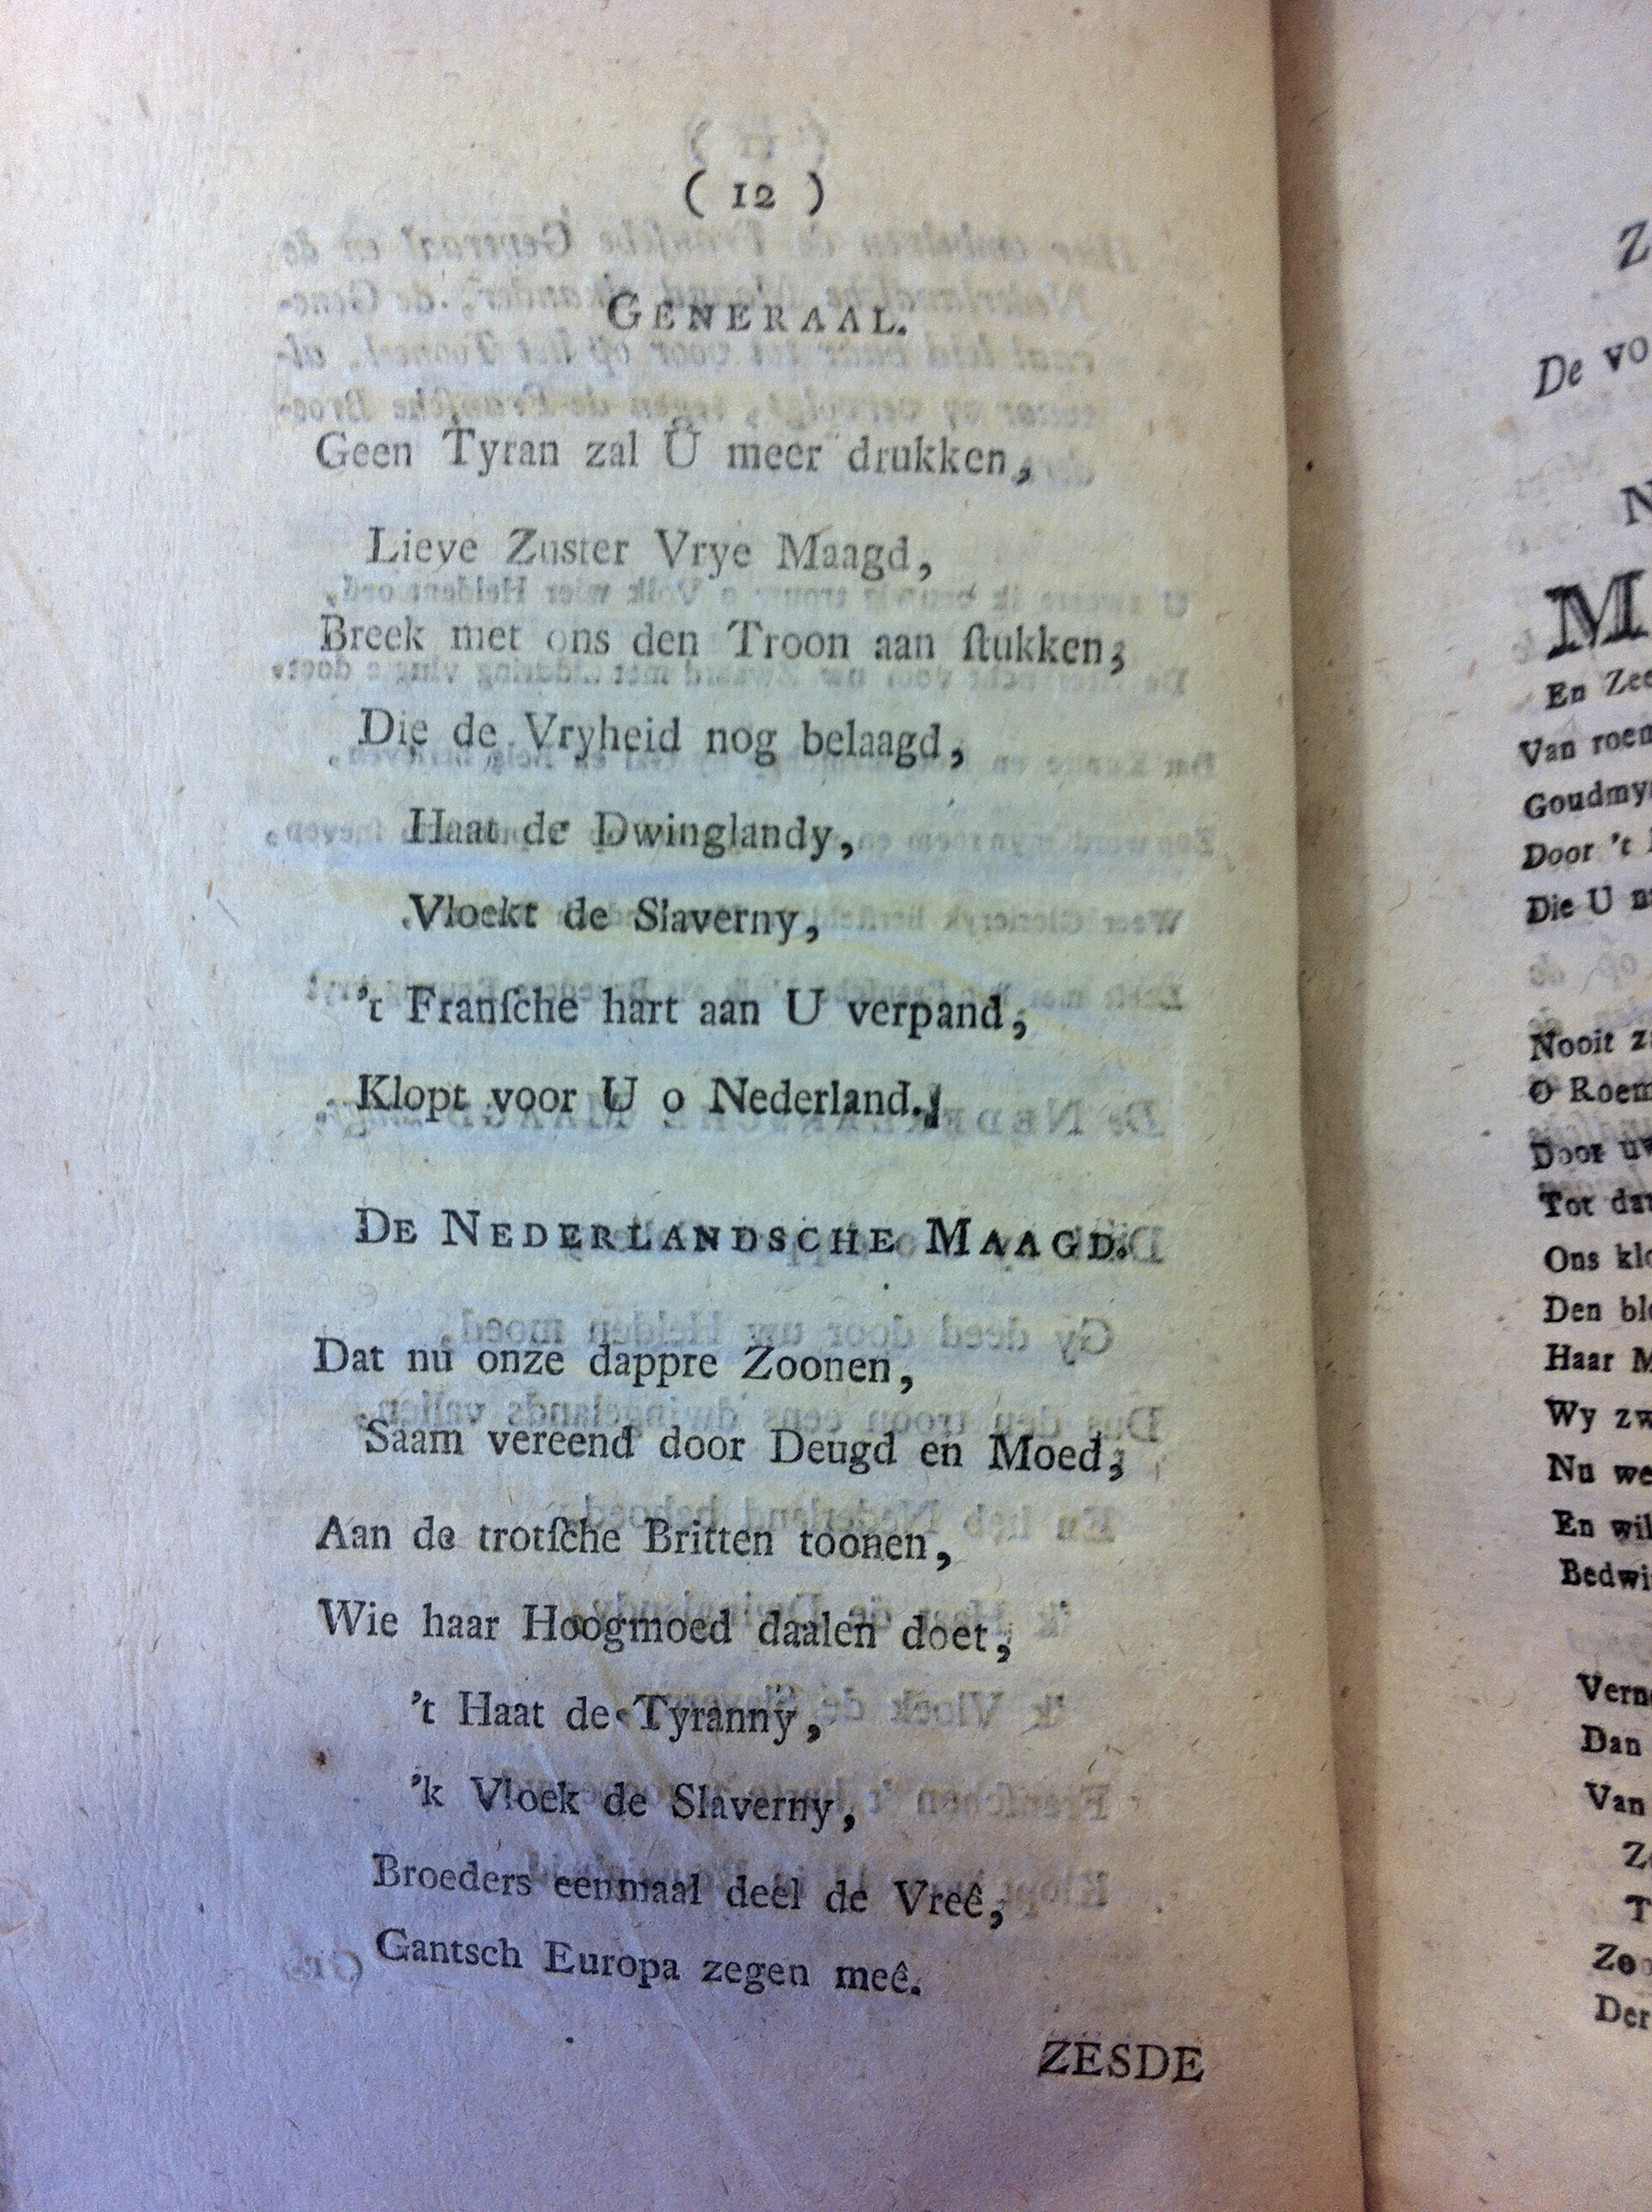 ( 12 )
GENERAAL.
Geen Tyran zal U meer drukken,
Lieve Zuster Vrye Maagd,
Breek met ons den Troon aan ſtukken;
Die de Vryheid nog belaagd,
Haat de Dwinglandy,
Vloekt de Slaverny,
't Franſche hart aan U verpand,
Klopt voor U o Nederland.
DE NEDERLANDSCHE MAAGD.
Dat nu onze dappre Zoonen,
Saam vereend door Deugd en Moed;
Aan de trotſche Britten toonen,
Wie haar Hoogmoed daalen doet,
't Haat de Tyranny,
'k Vloek de Slaverny,
Broeders eenmaal deel de Vreê,
Gantsch Europa zegen meê.
ZESDE
De
En
Van
Door 't
Die U
Nooit
O
Door
Tot
Ons
Den
Haar
Wy
Nu
En
Dan
Van